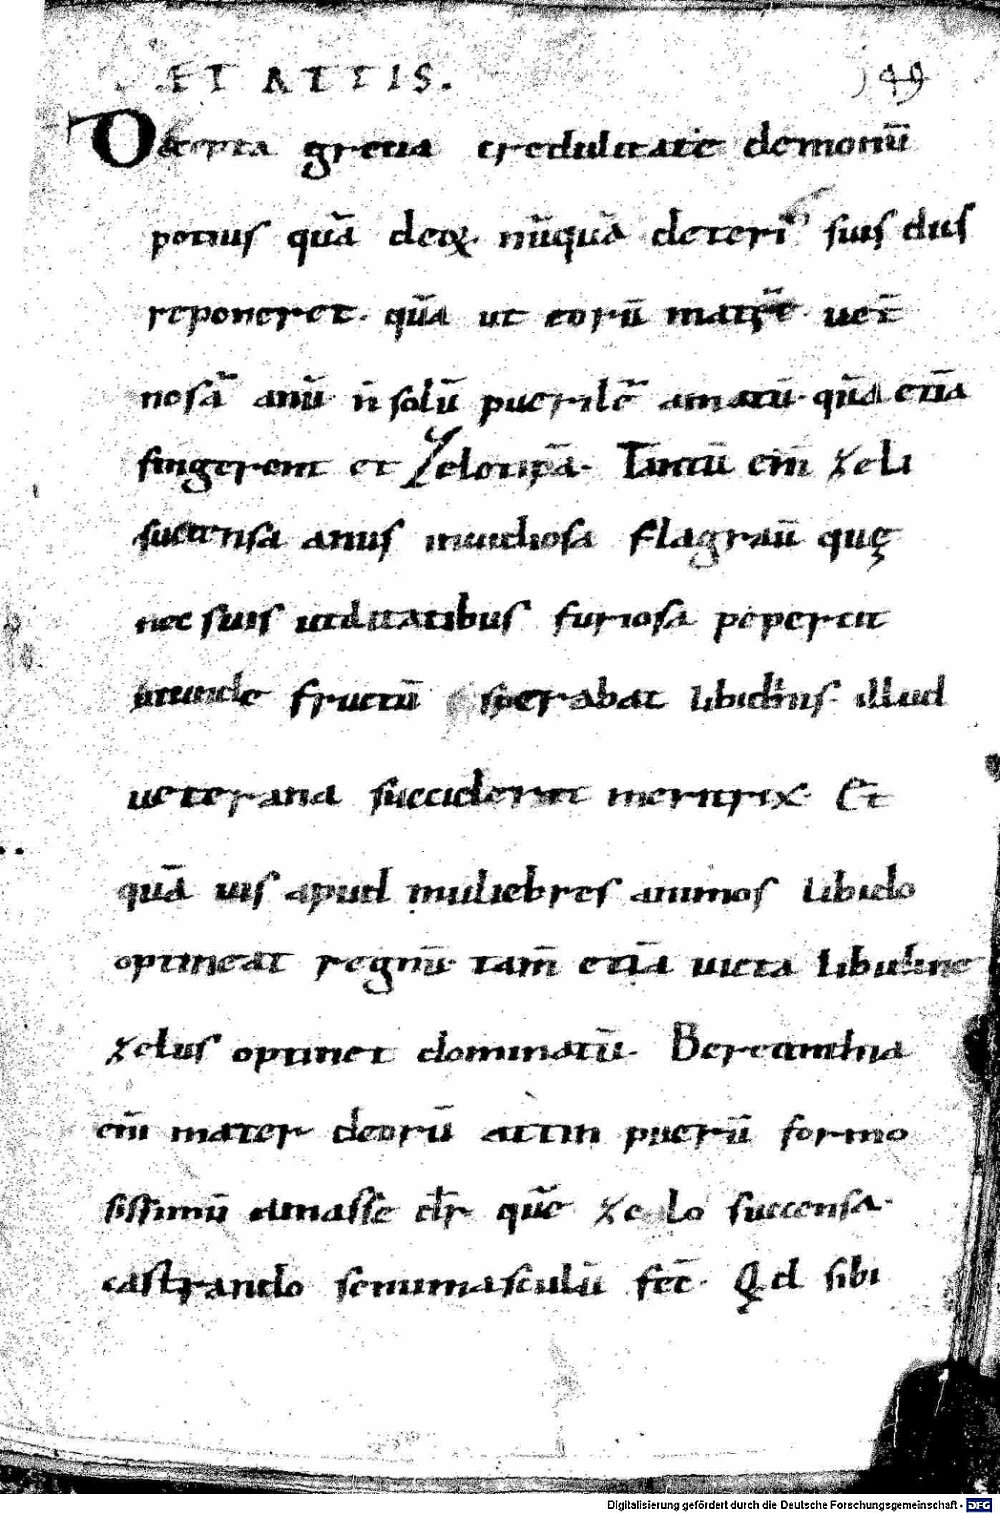 ET ATTIS.
149
Decepta gretia credulitate demonū
potius quā deoꝝ. nūquā deteri᾽ suis diis
reponeret. quā ut eorū matrē uet
nosā anū. n̄ solū puerilē amatū. quā etiā
fingerent et Zelotipā. Tantū em̄ zeli
succensa anus inuidiosa flagrauit quę
nec suis utilitatibus furiosa pepercit
unde fructū sperabat libidinis. illud
ueterana succiderit meritrix. Et
quā uis apud muliebres animos libido
optineat regnū. tam̄ etiā uicta libidine
zelus optinet dominatū. Berecinthia
em̄ mater deorū attin puerū formo
sissimū amasse dr̄ quē zelo succensa.
castrando semimasculū fec̄. Qd sibi
Digitalisierung gefördert durch die Deutsche Forschungsgemeinschaft - DFG